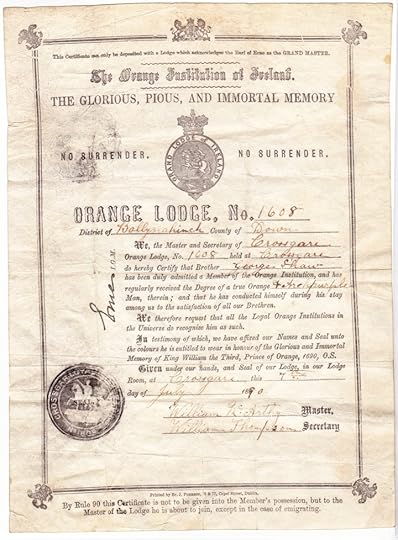 This Certificate can only be deposited with a Lodge which acknowledges the Earl of Erne as the GRAND MASTER.
The Orange Institution of Ireland.
THE GLORIOUS, PIOUS, AND IMMORTAL MEMORY
GRAND LODGE OF IRELAND
NO SURRENDER. NO SURRENDER.
ORANGE LODGE, No. 1608
District of Ballynahinch County of Down
We, the Master and Secretary of Crossgare
Orange Lodge, No. 1608 held at Crossgare
do hereby Certify that Brother George Shaw
has been duly admitted a Member of the Orange Institution, and has
regularly received the Degree of a true Orange & Archpurple
Man, therein; and that he has conducted himself during his stay
among us to the satisfaction of all our Brethren.
We therefore request that all the Loyal Orange Institutions in
the Universe do recognise him as such.
In testimony of which, we have affixed our Names and Seal unto
the colours he is entitled to wear in honour of the Glorious and Immortal
Memory of King William the Third, Prince of Orange, 1690, O.S.
Given under our hands, and Seal of our Lodge, in our Lodge
Room, at Crossgare this 7th
day of July
William Master,
William Thompson Secretary
By Rule 90 this Certificate is not to be given into the Member's possession, but to the
Master of the Lodge he is about to join, except in the case of emigrating.